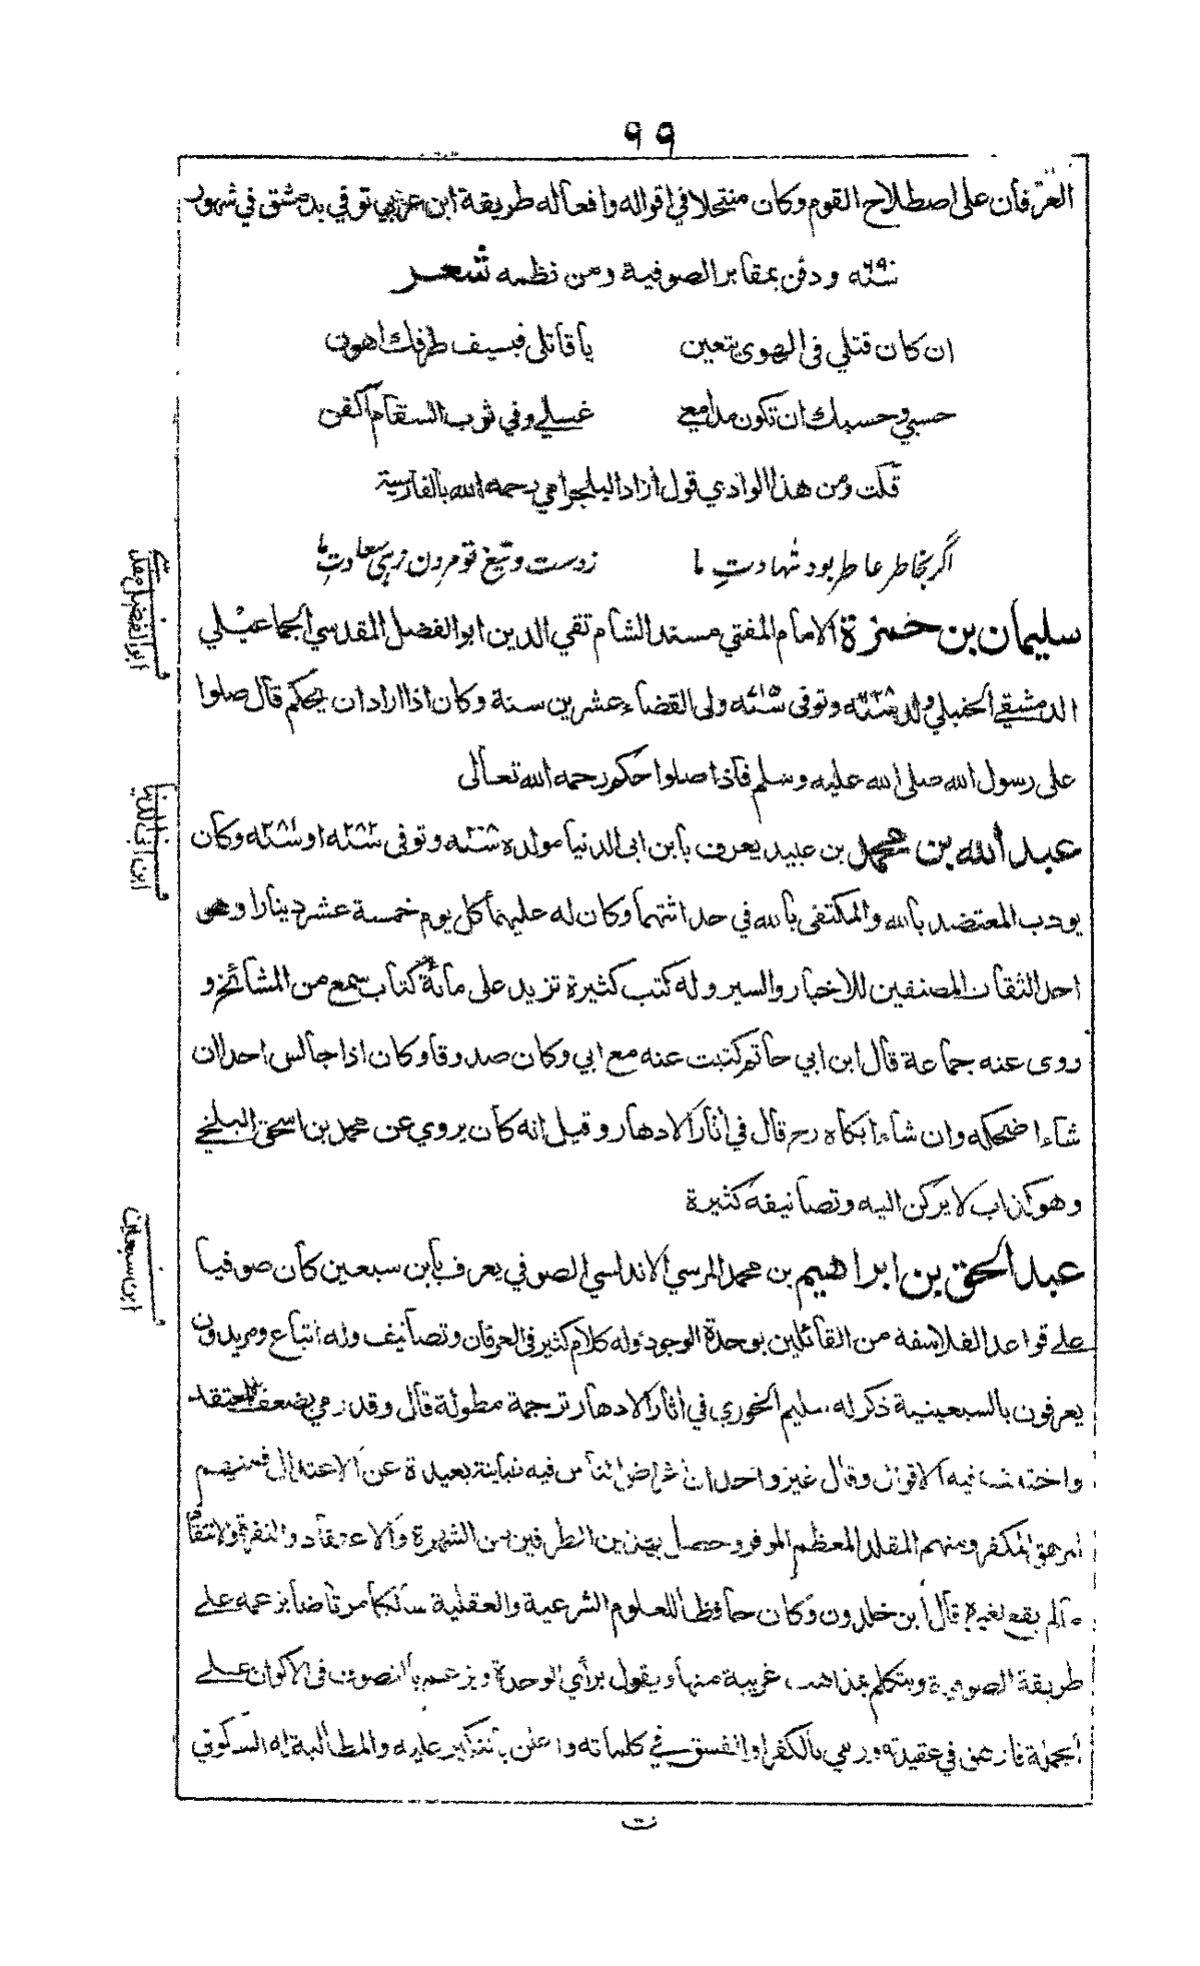 ٩٩
العرفان على اصطلاح القوم وكان منتحلا في اقواله وافعاله طريقة ابن عربي توفي بدمشق في شهور
سنة ٦٩٠ ودفن بمقابر الصوفية ومن نظمه شعر
ان كان قتلي فى الهوى يتعين يا قاتلى فبسيف طرفك اهون
حسبي وحسبك ان تكون مدامعي غسلي وفي ثوب السقام اكفن
قلت ومن هذا الوادي قول ازاد البلجرامي رحمه الله بالفارسية
اگر بخاطر عاطر بود شهادتِ ما زدست وتيغ تو مردن زہی سعادتِ ما
سليمان بن حمزة الامام المفتي مسند الشام تقي الدين ابو الفضل المقدسي الجماعيلي
الدمشقي الحنبلي ولد سنة ٦٢٨ وتوفى سنة ٧١٥ ولى القضاء عشرين سنة وكان اذا اراد ان يحكم قال صلوا
على رسول الله صلى الله عليه وسلم فاذا صلوا حكم رحمه الله تعالى
عبد الله بن محمد بن عبيد يعرف بابن ابى الدنيا مولده سنة ٢٠٨ وتوفى سنة ٢٨٢ او سنة ٢٨١ وكان
يودب المعتضد بالله والمكتفى بالله في حداثتهما وكان له عليهما كل يوم خمسة عشر دينارا وهو
احد الثقات المصنفين للاخبار والسير وله كتب كثيرة تزيد على مائة كتاب سمع من المشائخ و
روى عنه جماعة قال ابن ابي حاتم كتبت عنه مع ابي وكان صدوقا وكان اذا جالس احدا ان
شاء اضحكه وان شاء ابكاه رح قال في اثار الادهار وقيل انه كان يروي عن محمد بن اسحق البلخي
وهو كذاب لا يركن اليه وتصانيفه كثيرة
عبد الحق بن ابراهيم بن محمد المرسي الاندلسي الصوفي يعرف بابن سبعين كان صوفيا
على قواعد الفلاسفة من القائلين بوحدة الوجود وله كلام كثير فى العرفان وتصانيف وله اتباع ومريدون
يعرفون بالسبعينية ذكر له سليم الخوري في اثار الادهار ترجمة مطولة قال وقد رمي بضعف المعتقد
واختلفت فيه الاقوال وقال غير واحد ان اغراض الناس فيه متباينة بعيدة عن الاعتدال فمنهم
المرهق المكفر ومنهم المقلد المعظم الموفر وحصل بهذين الطرفين من الشهرة والاعتقاد والنفرة والانتقاد
ما لم يقع لغيره قال ابن خلدون وكان حافظا للعلوم الشرعية والعقلية سالكا مرتاضا بزعمه على
طريقة الصوفية ويتكلم بمذاهب غريبة منها ويقول براي الوحدة ويزعم بالتصوف فى الاكوان على
الجملة فارهق في عقيدته ورمي بالكفر او الفسق في كلماته واعلن بالنكير عليه والمطالبة له السكوتي
ت
ابو الفضل
ابن ابى الدنيا
ابن سبعين